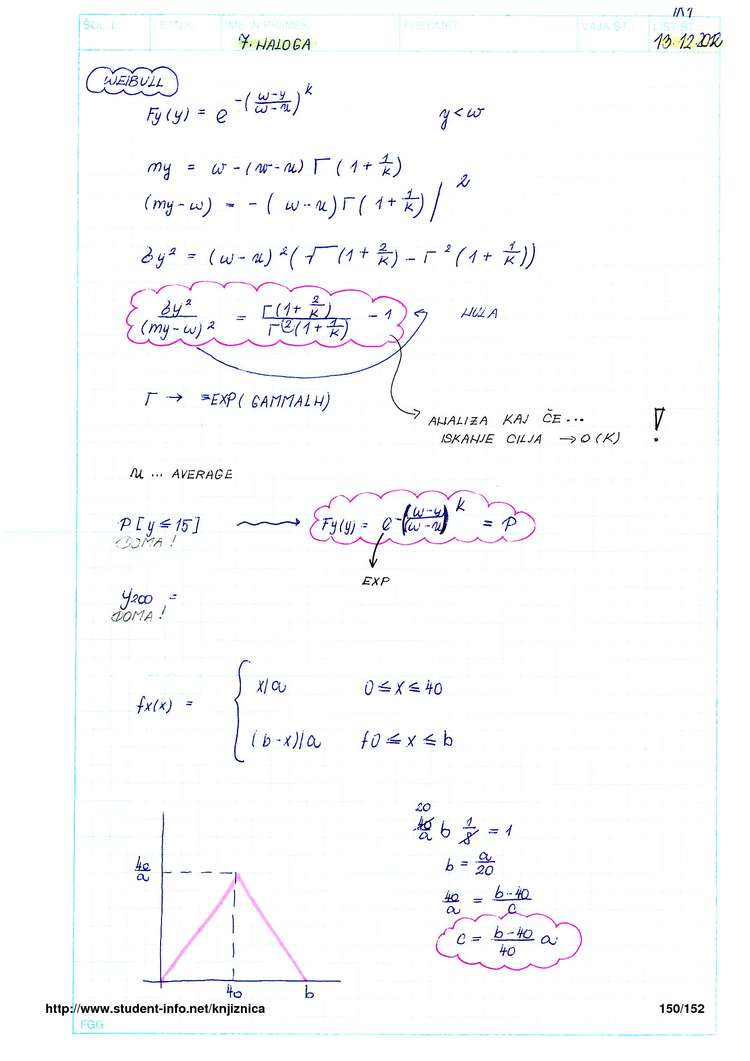 ŠOL. L.
LETNIK
IME IN PRIIMEK
PREDMET
VAJA ŠT.
LIST ŠT.
7. NALOGA
13.12.2012
WEIBULL
Fy(y) = e^-((w-y)/(w-u))^k    y < w
my = w - (w-u) Γ(1 + 1/k)
(my - w) = - (w-u) Γ(1 + 1/k) /²
δy² = (w-u)²(Γ(1 + 2/k) - Γ²(1 + 1/k))
δy²/(my-w)² = Γ(1+2/k)/Γ²(1+1/k) - 1
Γ → =EXP(GAMMALN)
ANALIZA KAJ ČE...
ISKANJE CILJA → 0 (K) !
u ... AVERAGE
P[y ≤ 15]    Fy(y) = e^-((w-y)/(w-u))^k = P
DOMA!
EXP
y200 =
DOMA!
fx(x) =
x/a    0 ≤ x ≤ 40
(b-x)/a    40 ≤ x ≤ b
20
40/a b 1/8 = 1
b = a/20
40/a = (b-40)/c
c = (b-40)/40 a
40/a
40    b
http://www.student-info.net/knjiznica
150/152
FGG